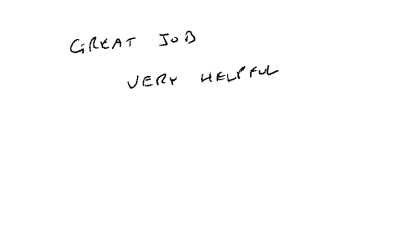 GREAT JOB
VERY HELPFUL